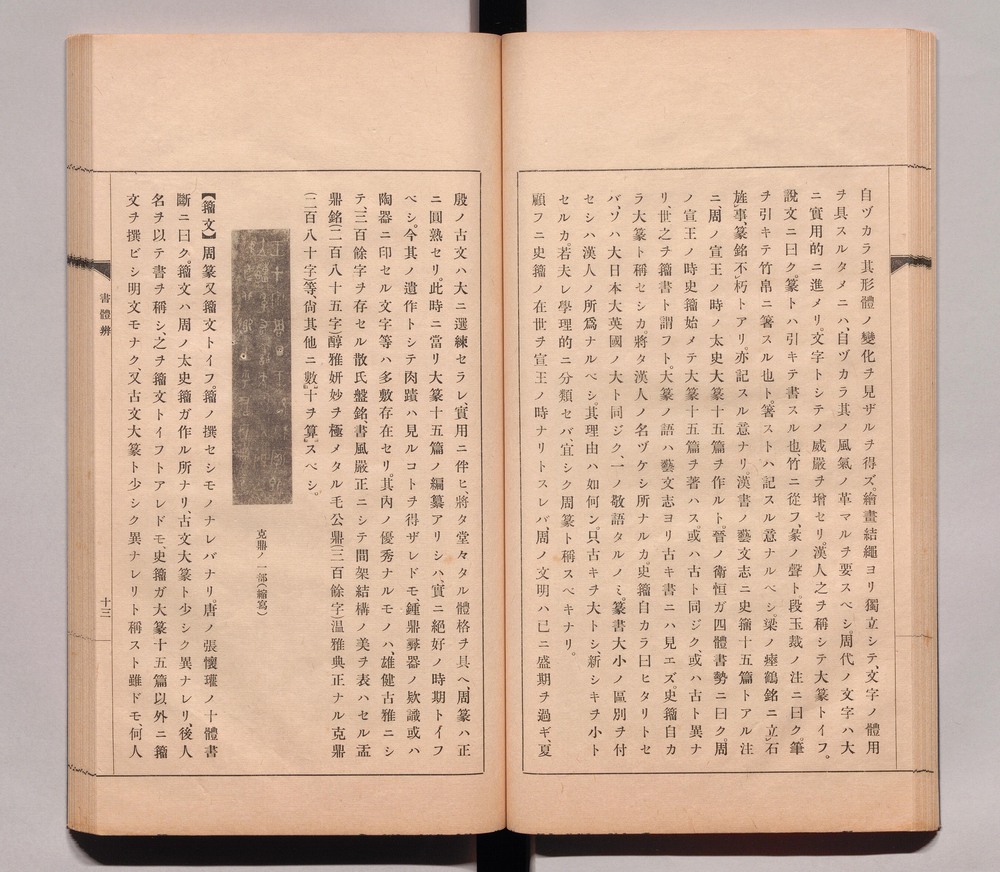 自ヅカラ其形體ノ變化ヲ見ザルヲ得ズ。繪畫結繩ヨリ獨立シテ、文字ノ體用
ヲ具スルタメニハ、自ヅカラ其ノ風氣ノ革マルヲ要スベシ。周代ノ文字ハ大
ニ實用的ニ進メリ。文字トシテノ威嚴ヲ增セリ。漢人之ヲ稱シテ大篆トイフ。
說文ニ曰ク。篆トハ引キテ書スル也、竹ニ從フ、彖ノ聲ト。段玉裁ノ注ニ曰ク。筆
ヲ引キテ竹帛ニ箸スル也ト。箸ストハ記スル意ナルベシ。梁ノ瘞鶴銘ニ立石
旌事、篆銘不朽トアリ。亦記スル意ナリ。漢書ノ藝文志ニ史籒十五篇トアル注
ニ、周ノ宣王ノ時ノ太史大篆十五篇ヲ作ルト。晉ノ衞恒ガ四體書勢ニ曰ク。周
ノ宣王ノ時史籒始メテ大篆十五篇ヲ著ハス。或ハ古ト同ジク、或ハ古ト異ナ
リ、世之ヲ籒書ト謂フト。大篆ノ語ハ藝文志ヨリ古キ書ニハ見エズ。史籒自カ
ラ大篆ト稱セシカ。將タ漢人ノ名ヅケシ所ナルカ。史籒自カラ曰ヒタリトセ
バ、ソハ大日本大英國ノ大ト同ジク、一ノ敬語タルノミ。篆書大小ノ區別ヲ付
セシハ漢人ノ所爲ナルベシ。其理由ハ如何ン。只古キヲ大トシ、新シキヲ小ト
セルカ。若夫レ學理的ニ分類セバ、宜シク周篆ト稱スベキナリ。
顧フニ史籒ノ在世ヲ宣王ノ時ナリトスレバ、周ノ文明ハ已ニ盛期ヲ過ギ、夏
殷ノ古文ハ大ニ選練セラレ、實用ニ伴ヒ、將タ堂々タル體格ヲ具ヘ、周篆ハ正
ニ圓熟セリ。此時ニ當リ大篆十五篇ノ編纂アリシハ、實ニ絕好ノ時期トイフ
ベシ。今其ノ遺作トシテ肉蹟ハ見ルコトヲ得ザレドモ、鍾鼎尋器ノ欵識或ハ
陶器ニ印セル文字等ハ多數存在セリ。其內ノ優秀ナルモノハ、雄健古雅ニシ
テ、三百餘字ヲ存セル散氏盤銘、書風嚴正ニシテ間架結構ノ美ヲ表ハセル盂
鼎銘(二百八十五字)醇雅妍妙ヲ極メタル毛公鼎(三百餘字)溫雅典正ナル克鼎
(二百八十字)等、尙其他ニ數十ヲ算スベシ。
克鼎ノ一部(縮寫)
【籒文】周篆又籒文トイフ。籒ノ撰セシモノナレバナリ。唐ノ張懷瓘ノ十體書
斷ニ曰ク。籒文ハ周ノ太史籒ガ作ル所ナリ、古文大篆ト少シク異ナレリ、後人
名ヲ以テ書ヲ稱シ、之ヲ籒文トイフトアレドモ、史籒ガ大篆十五篇以外ニ籒
文ヲ撰ビシ明文モナク、又古文大篆ト少シク異ナレリト稱スト雖ドモ、何人
書體辨
十三